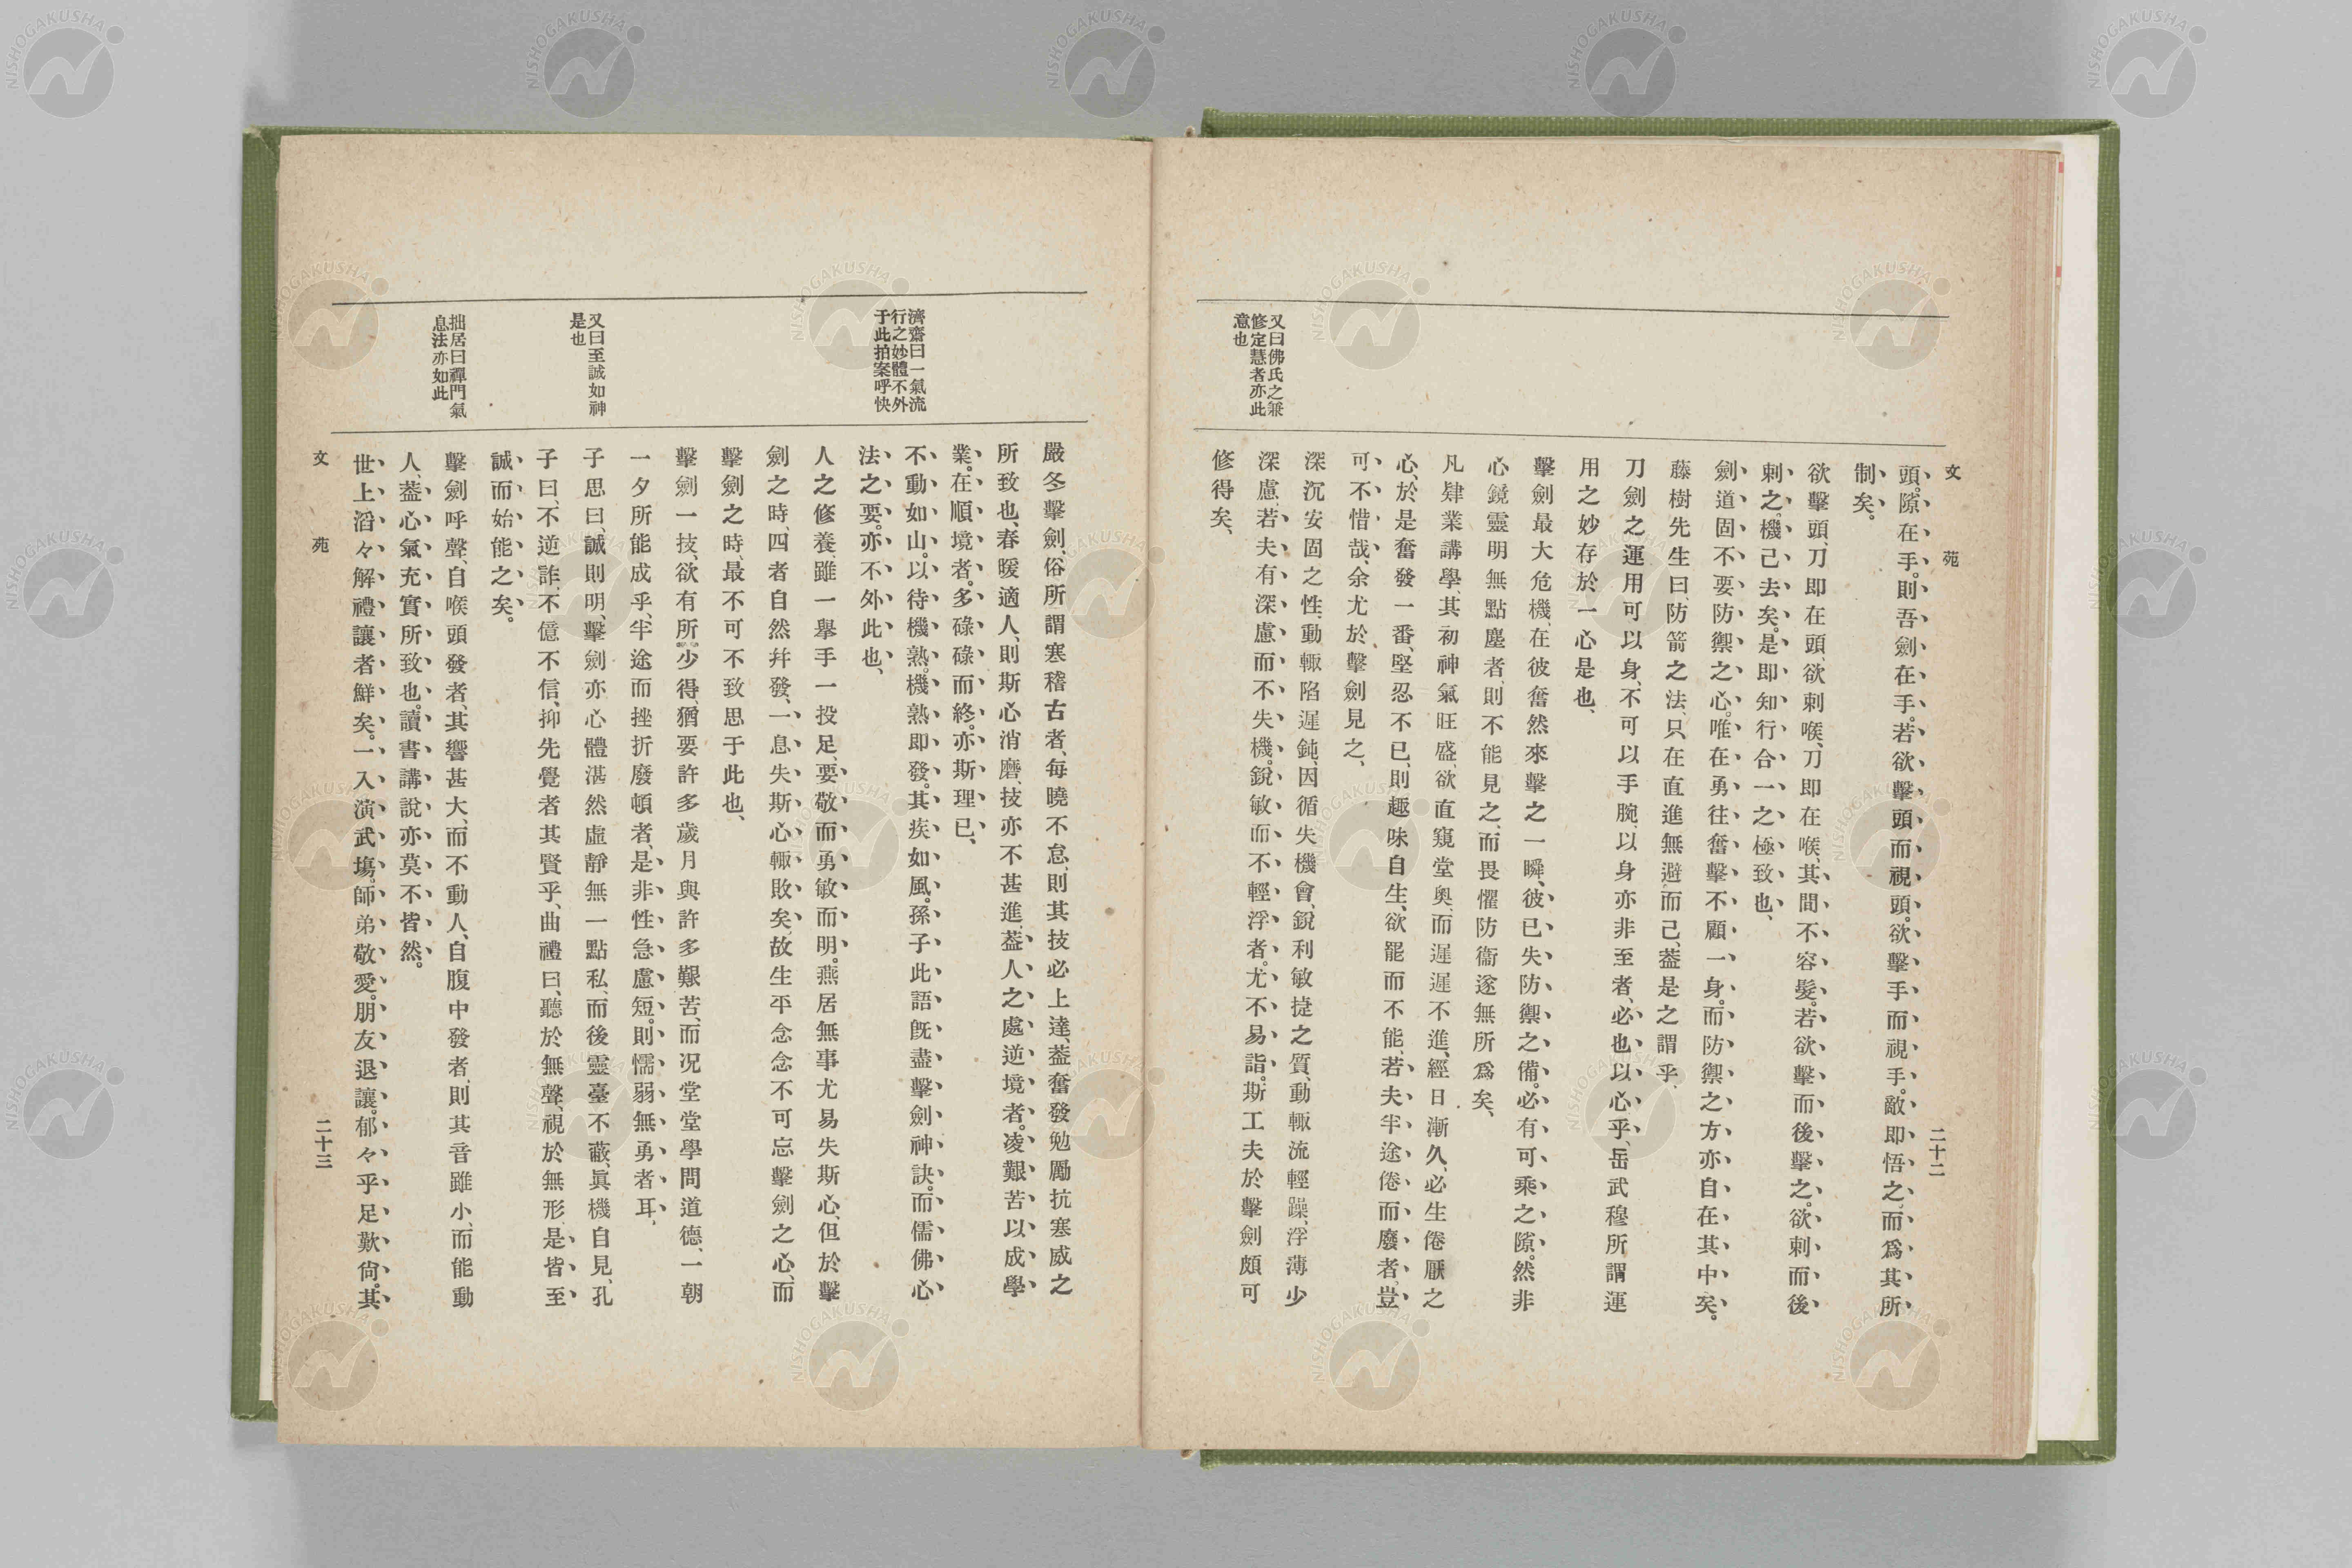 文苑
二十二
頭。隙在手。則吾劍在手。若欲擊頭而視頭。欲擊手而視手。敵即悟之、而爲其所
制矣。
欲擊頭、刀即在頭、欲刺喉、刀即在喉、其間不容髮。若欲擊而後擊之。欲刺而後
刺之。機已去矣。是即知行合一之極致也、
劍道固不要防禦之心。唯在勇往奮擊不顧一身。而防禦之方亦自在其中矣。
藤樹先生曰、防箭之法、只在直進無避而已、葢是之謂乎、
刀劍之運用可以身、不可以手腕、以身亦非至者、必也以心乎、岳武穆所謂運
用之妙存於一心是也、
擊劍最大危機、在彼奮然來擊之一瞬、彼已失防禦之備。必有可乘之隙。然非
心鏡靈明無點塵者、則不能見之、而畏懼防衞遂無所爲矣、
凡肄業講學、其初神氣旺盛、欲直窺堂奧、而遲遲不進、經日漸久、必生倦厭之
心、於是奮發一番、堅忍不已、則趣味自生、欲罷而不能、若夫半途倦而廢者、豈
可不惜哉、余尤於擊劍見之、
深沉安固之性、動輒陷遲鈍、因循失機會、銳利敏捷之質、動輒流輕躁、浮薄少
深慮、若夫有深慮而不失機。銳敏而不輕浮者。尤不易詣。斯工夫於擊劍頗可
修得矣、
又曰佛氏之兼
修定慧者亦此
意也
嚴冬擊劍、俗所謂寒稽古者、每曉不怠、則其技必上達、葢奮發勉勵抗寒威之
所致也、春暖適人、則斯心消磨、技亦不甚進、葢人之處逆境者。凌艱苦以成學
業。在順境者。多碌碌而終。亦斯理已、
不動如山。以待機熟。機熟即發。其疾如風。孫子此語旣盡擊劍神訣。而儒佛心
法之要。亦不外此也、
人之修養、雖一擧手一投足、要敬而勇敏而明。燕居無事尤易失斯心、但於擊
劍之時、四者自然幷發、一息失斯心、輒敗矣、故生平念念不可忘擊劍之心、而
擊劍之時、最不可不致思于此也、
擊劍一技、欲有所少得、猶要許多歲月與許多艱苦、而况堂堂學問道德、一朝
一夕所能成乎、半途而挫折廢頓者、是非性急慮短。則懦弱無勇者耳、
子思曰、誠則明、擊劍亦心體湛然虛靜無一點私、而後靈臺不蔽、眞機自見、孔
子曰、不逆詐、不億不信、抑先覺者其賢乎、曲禮曰、聽於無聲、視於無形、是皆至
誠而始能之矣。
擊劍呼聲、自喉頭發者、其響甚大、而不動人、自腹中發者、則其音雖小、而能動
人、葢心氣充實所致也。讀書講說亦莫不皆然。
世上滔々解禮讓者鮮矣。一入演武塲。師弟敬愛。朋友退讓。郁々乎足歎尙。其
濟齋曰一氣流
行之妙體不外
于此拍案呼快
又曰至誠如神
是也
拙居曰禪門氣
息法亦如此
文苑
二十三
NISHOGAKUSHA